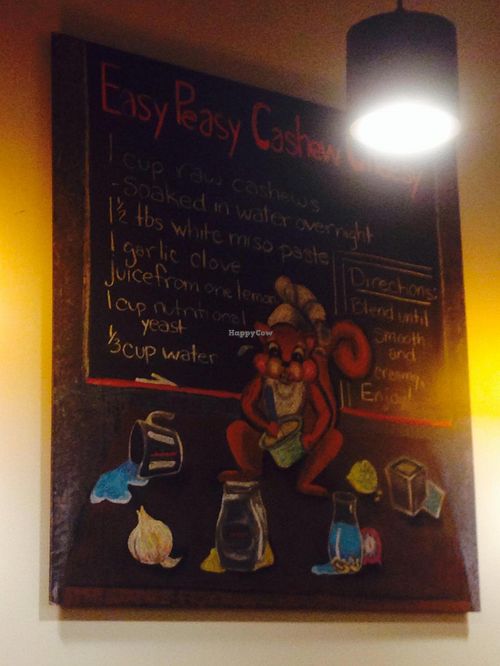 Easy Peasy Cashew
1 cup raw cashews
-Soaked in water overnight
1 1/2 tbs white miso paste
1 garlic clove
juice from one lemon
1 cup nutritional
yeast
1/3 cup water
Directions:
Blend until
smooth
and
creamy.
Enjoy!
HappyCow